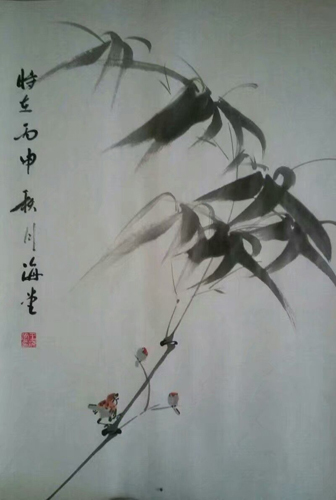 時在丙申秋月海堂